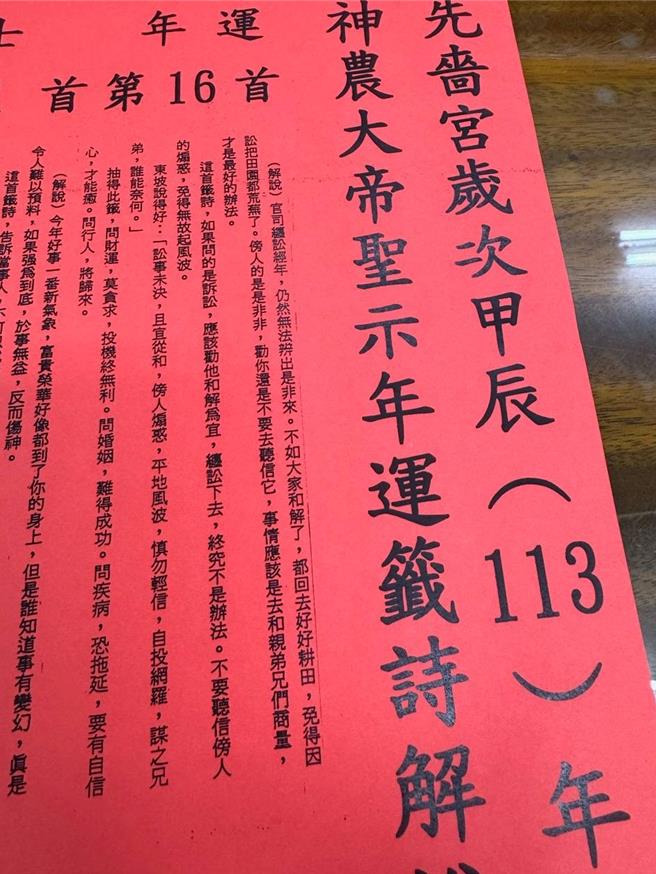 先嗇宮歲次甲辰（113）年
神農大帝聖示年運籤詩解
運
年
首第16首
（解說）官司纏訟經年，仍然無法辨出是非來。不如大家和解了，都回去好好耕田，免得因
訟把田園都荒蕪了。傍人的是是非非，勸你還是不要去聽信它，事情應該是去和親弟兄們商量，
才是最好的辦法。
這首籤詩，如果問的是訴訟，應該勸他和解為宜，纏訟下去，終究不是辦法。不要聽信傍人
的煽惑，免得無故起風波。
東坡說得好：「訟事未決，且宜從和，傍人煽惑，平地風波，慎勿輕信，自投網羅，謀之兄
弟，誰能奈何。」
抽得此籤，問財運，莫貪求，投機終無利。問婚姻，難得成功。問疾病，恐拖延，要有自信
心，才能癒。問行人，將歸來。
（解說）今年好事一番新氣象，富貴榮華好像都到了你的身上，但是誰知道事有變幻，眞是
令人難以預料，如果强爲到底，於事無益，反而傷神。
這首籤詩，告訴當事人，不可
士